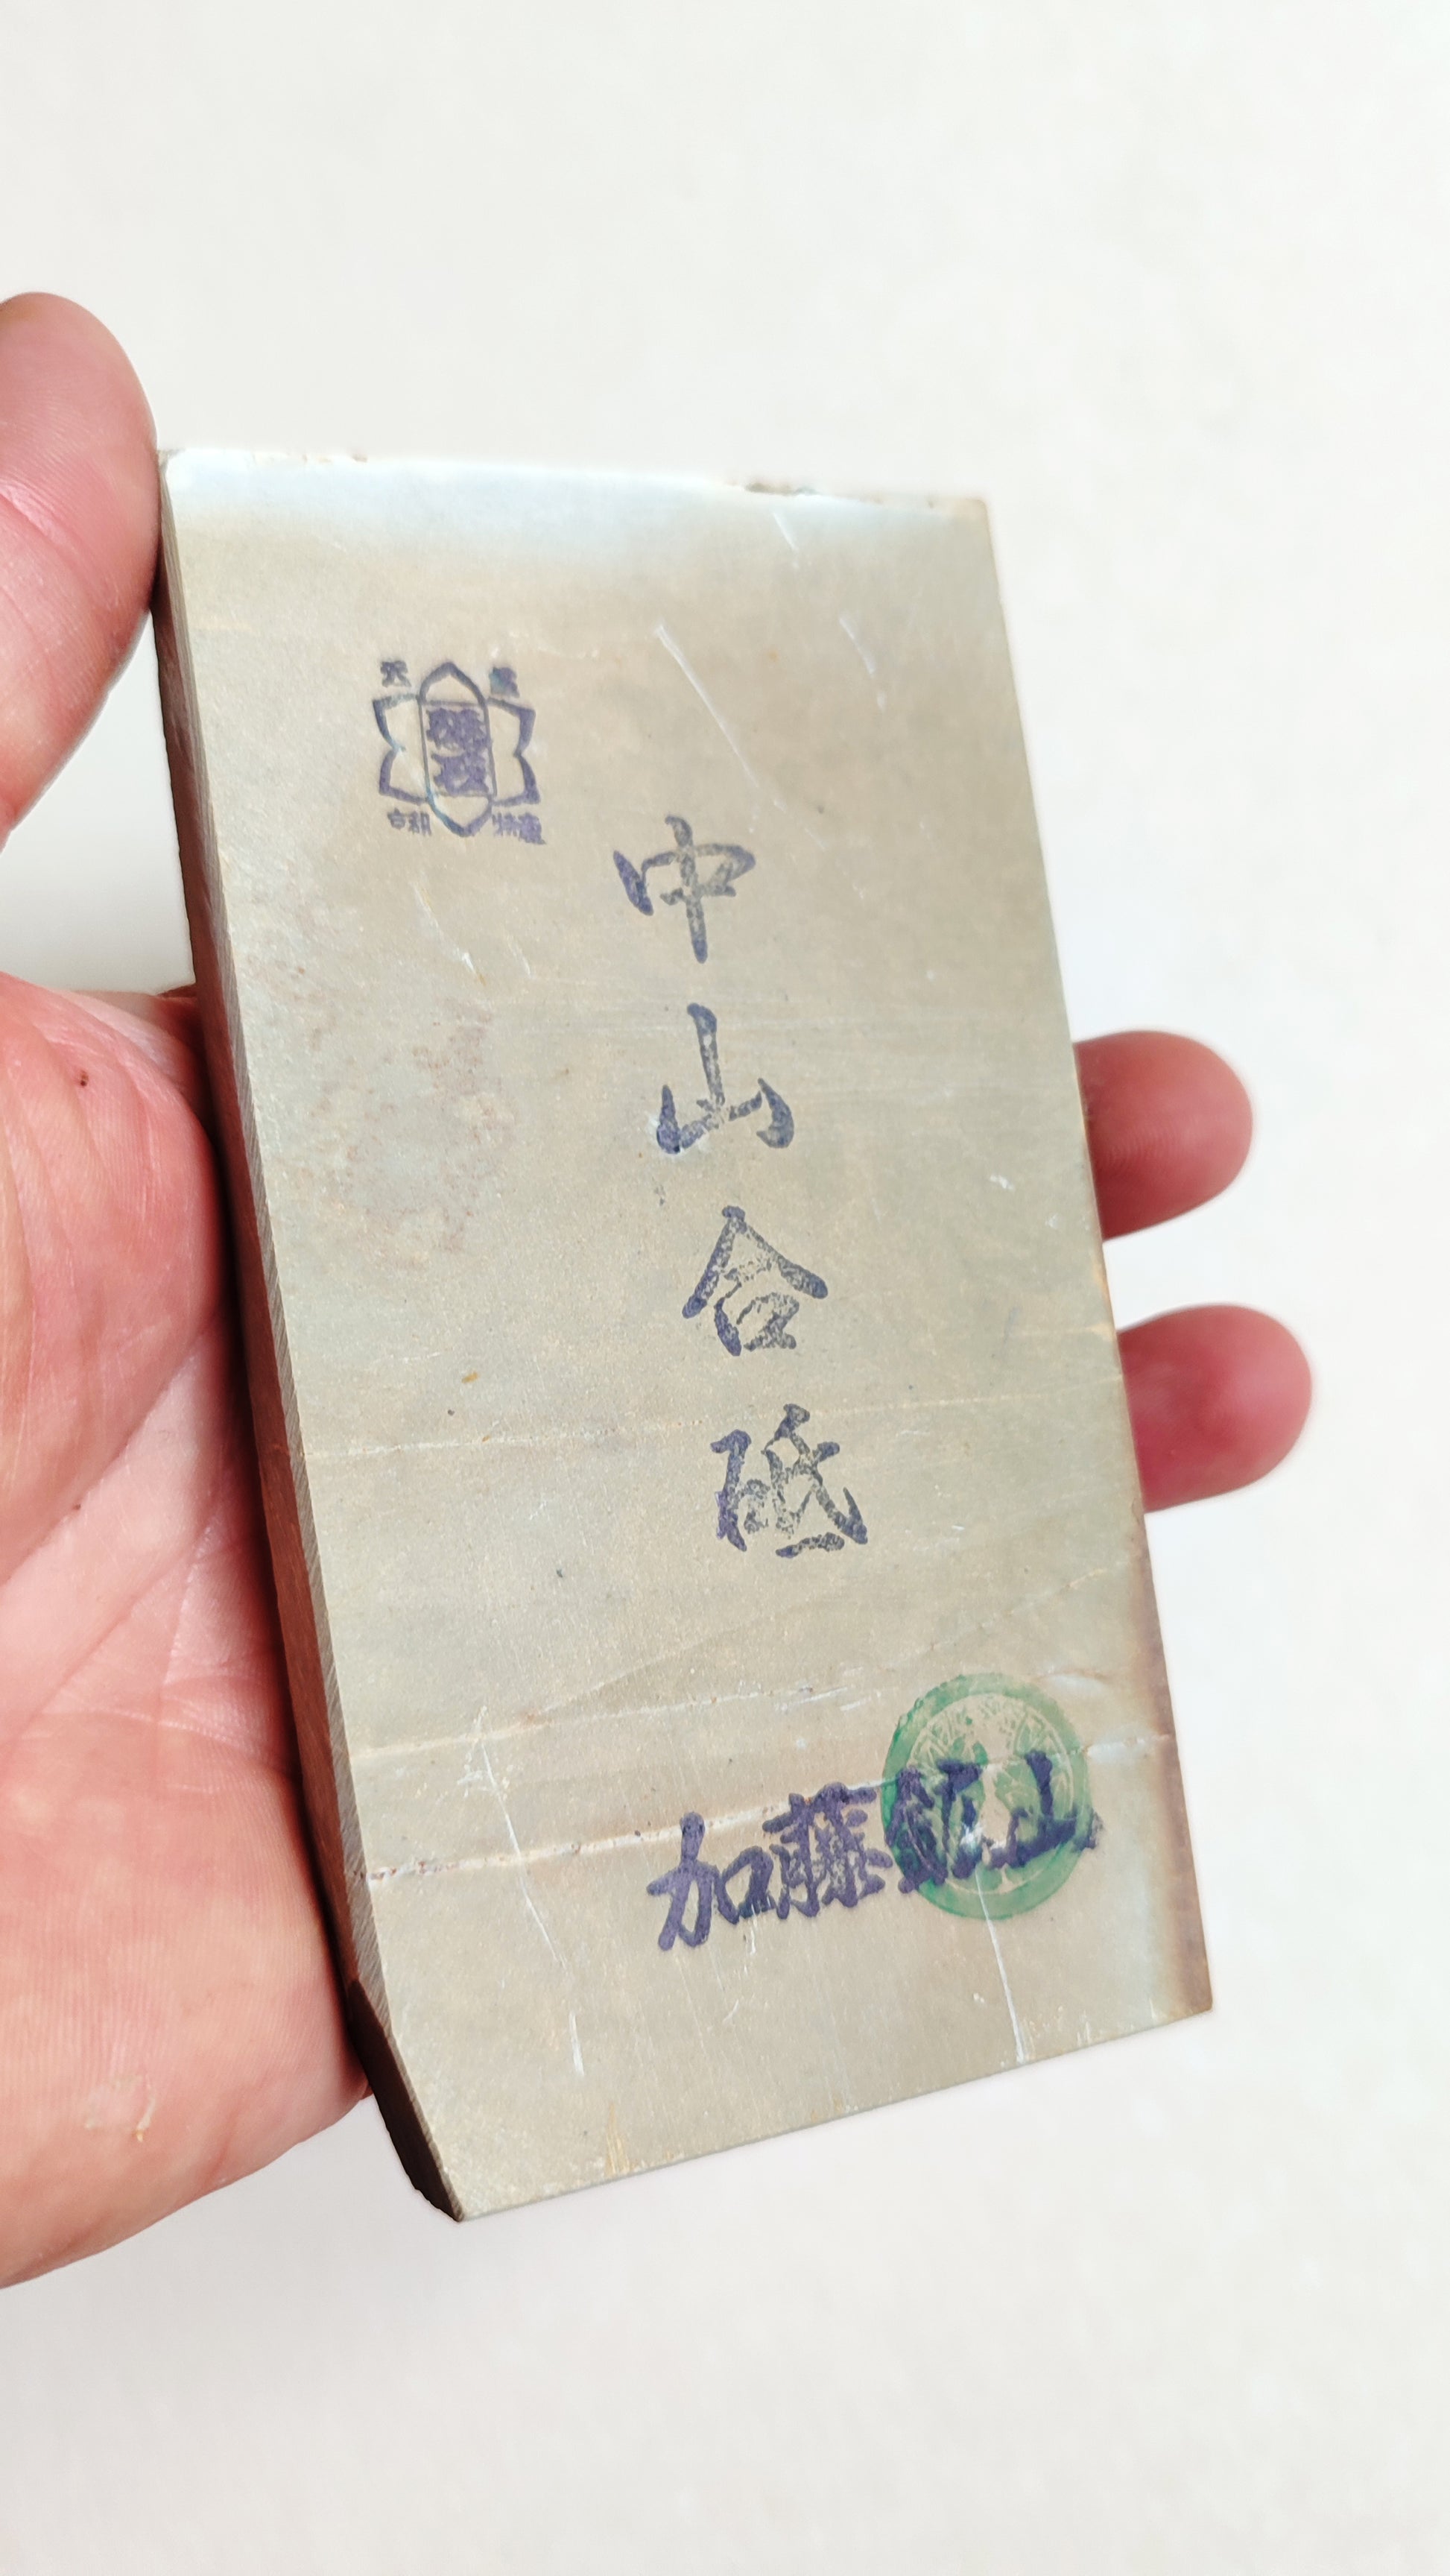 天産
京都 特産
中山合砥
加藤鉱山